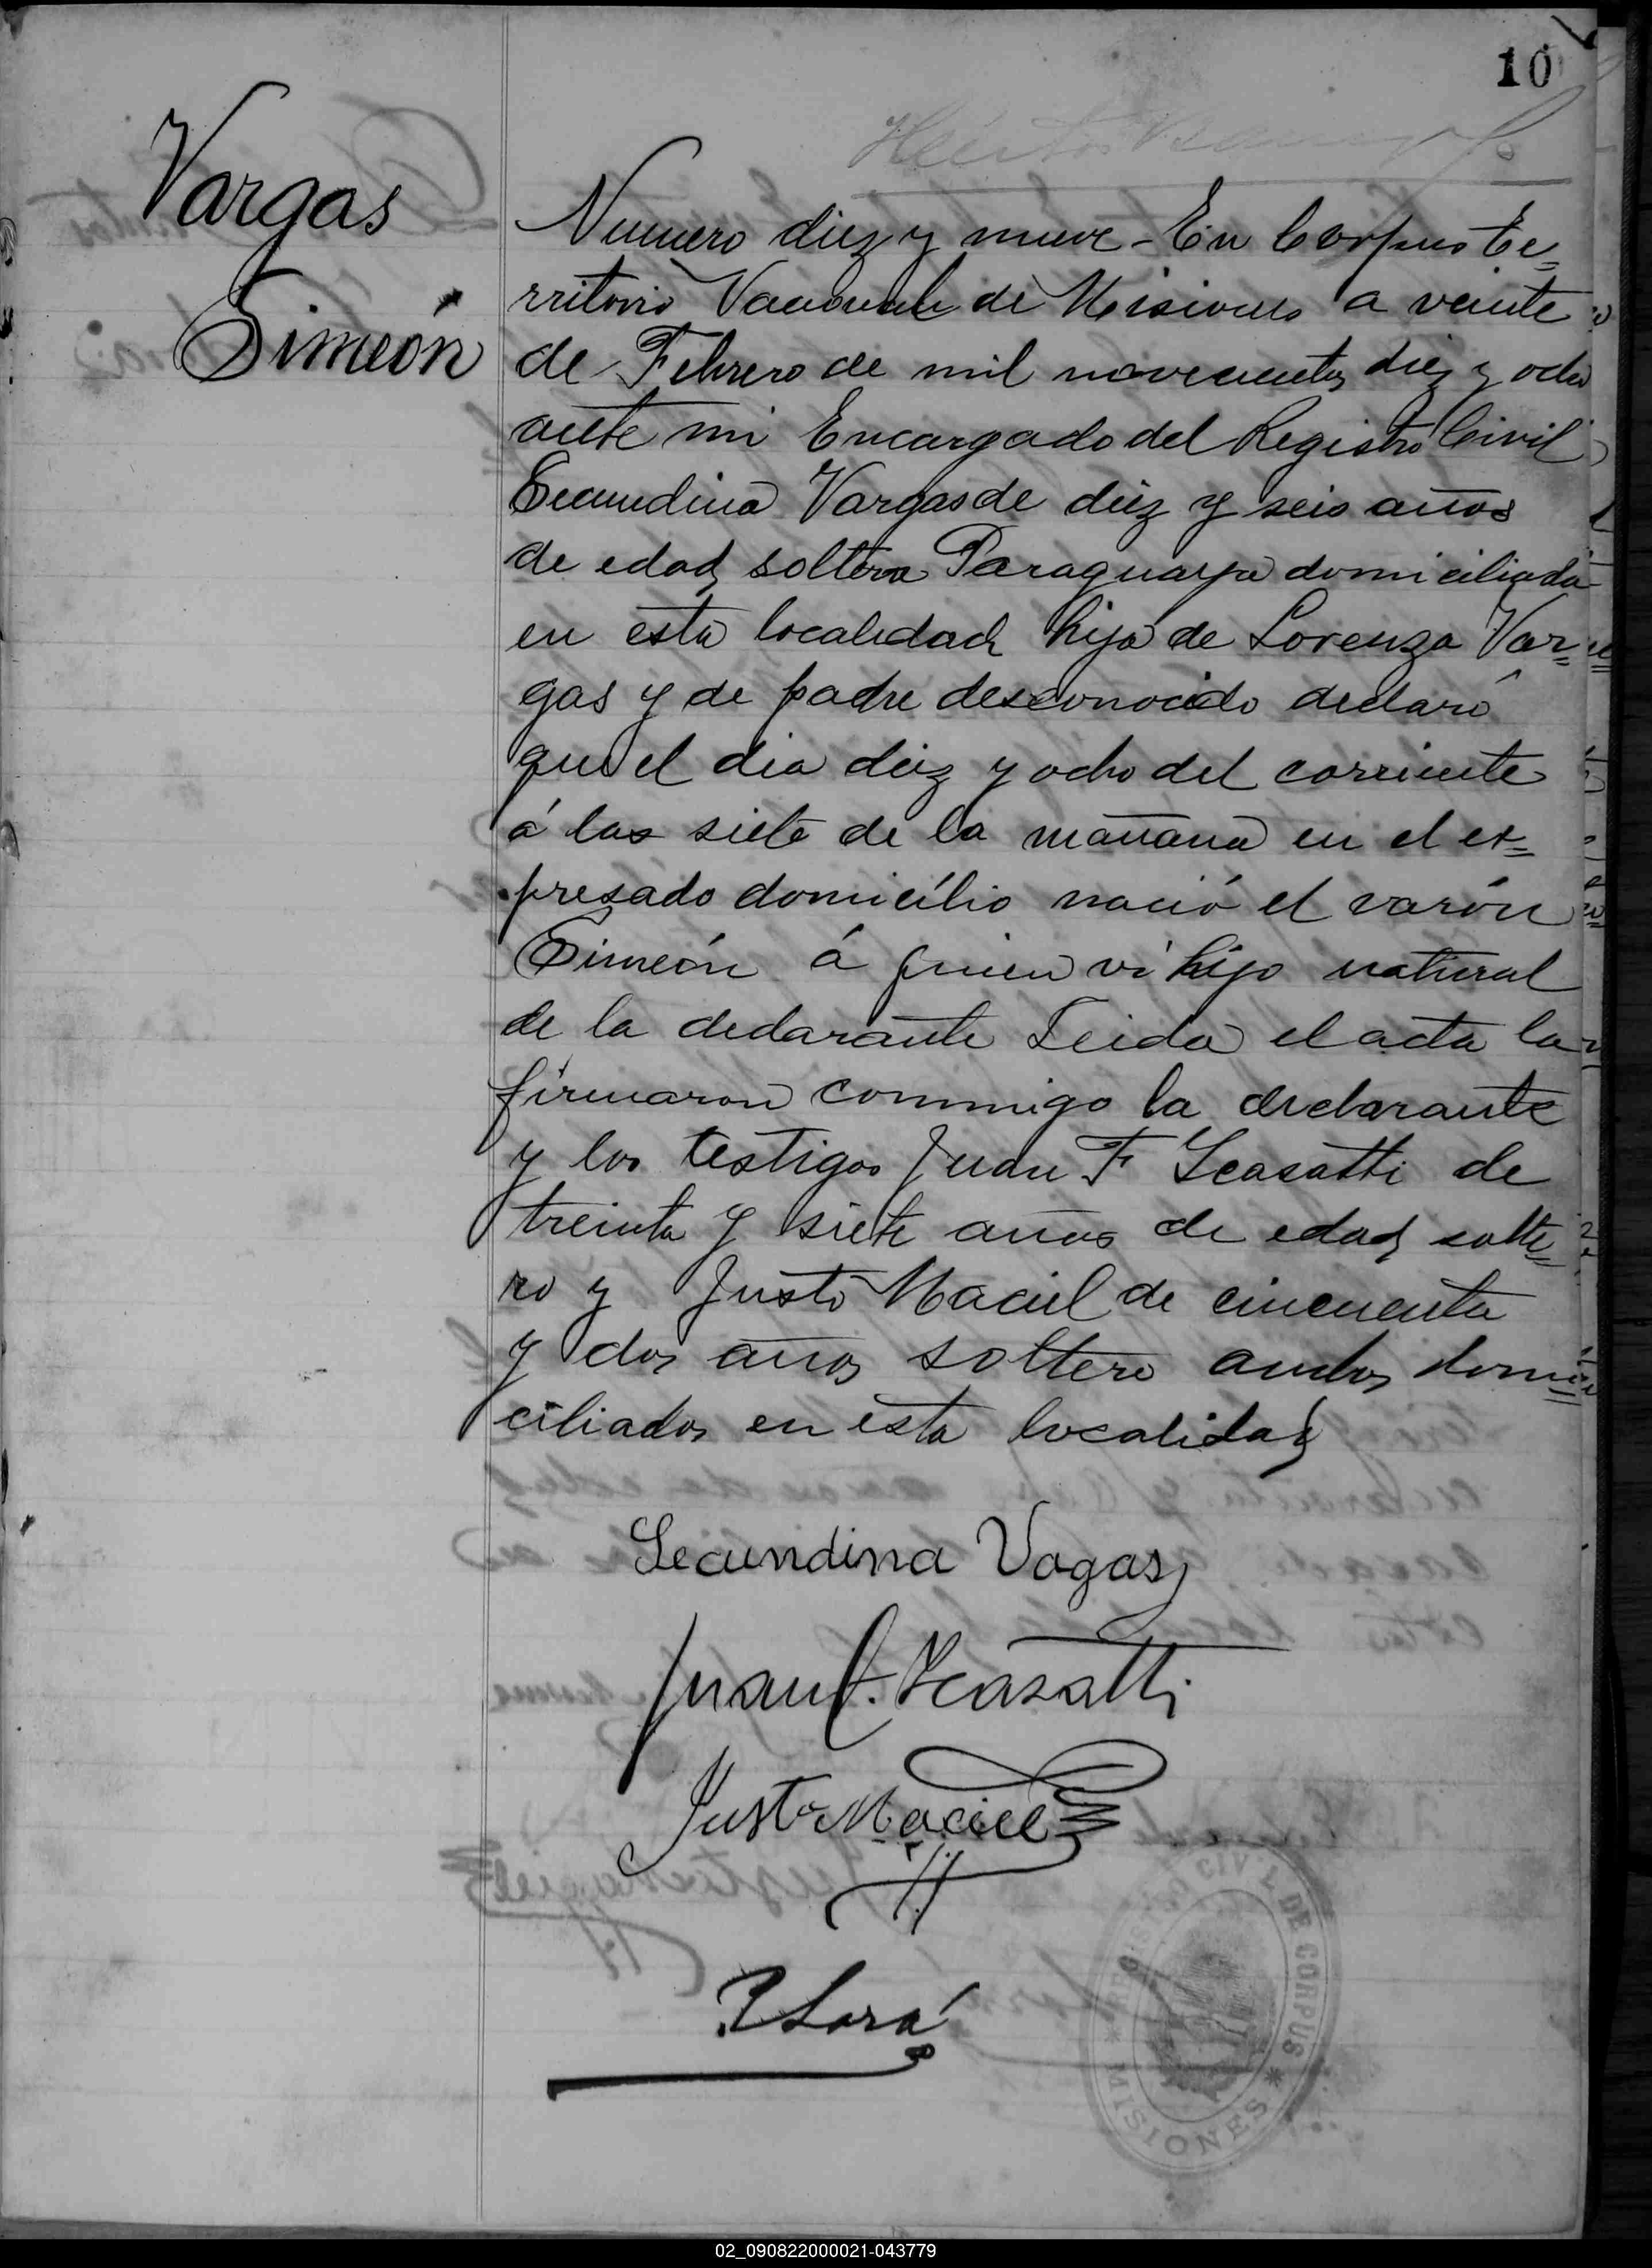 10
Vargas
Simeón
Numero diez y nueve - En Corpus Te=
rritorio Nacional de Misiones a veinte
de Febrero de mil novecientos diez y ocho
ante mi Encargado del Registro Civil
Secundina Vargas de diez y seis años
de edad soltera Paraguaya domiciliada
en esta localidad hija de Lorenza Var=
gas y de padre desconocido declaró
que el dia diez y ocho del corriente
á las siete de la mañana en el ex=
presado domicilio nació el varón
Simeón á quien vi hijo natural
de la declarante Leida el acta la
firmaron conmigo la declarante
y los testigos Juan F Scasatti de
treinta y siete años de edad solte=
ro y Justo Maciel de cincuenta
y dos años soltero ambos domi=
ciliados en esta localidad
Secundina Vagas
Juan F. Scasatti
Justo Maciel
P Lorá
REGISTRO CIVIL DE CORPUS * MISIONES *
02_090822000021-043779